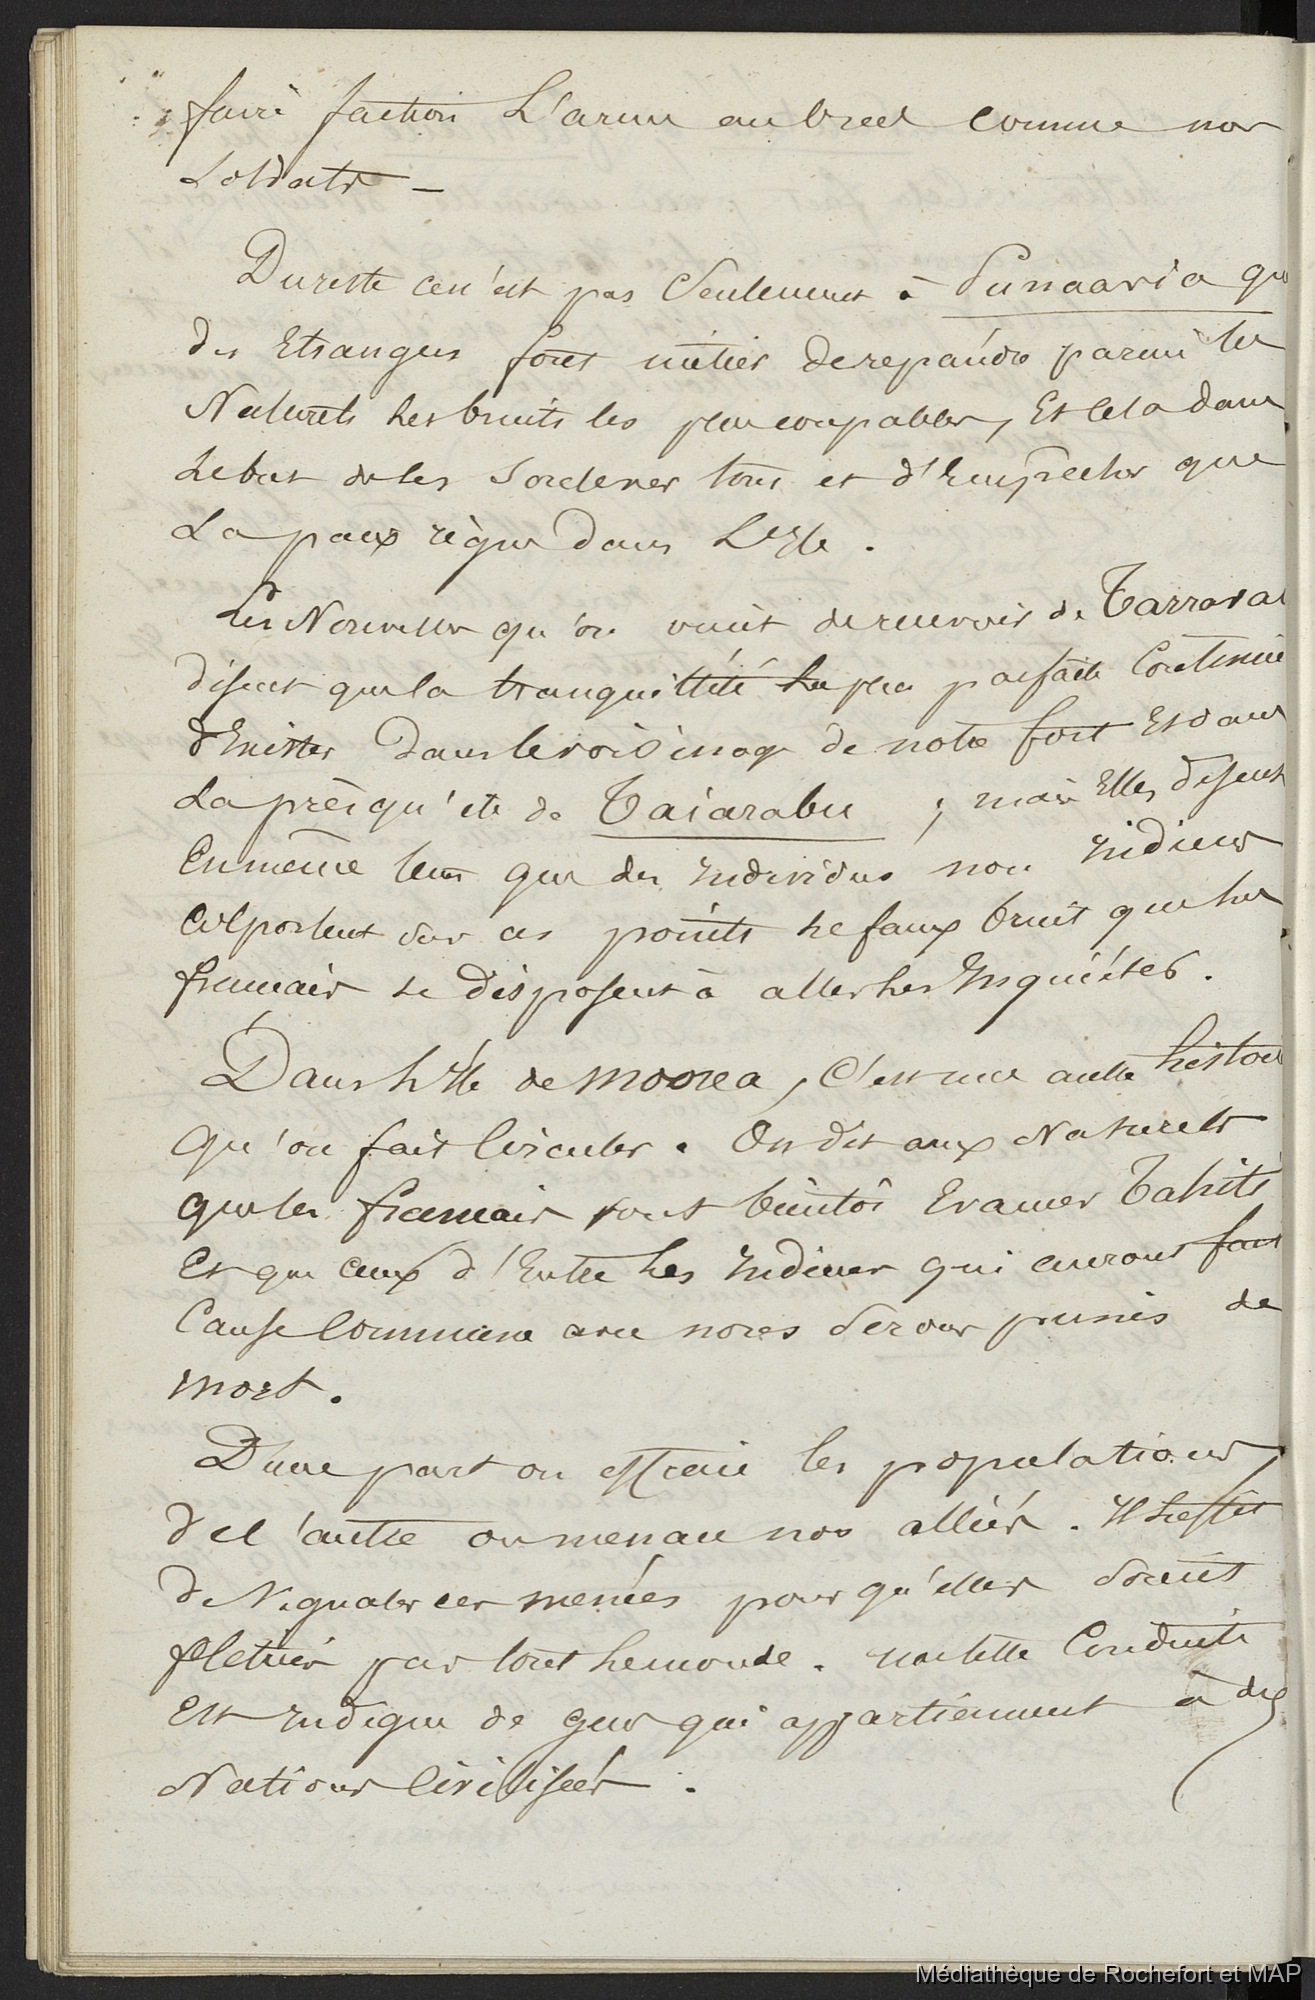 faire faction L'arme au bras comme nos
Soldats –
Dureste ce n'est pas Seulement à Punaavia que
des Etrangers font métier de repandre parmi les
Naturels les bruits les plus coupables, Et cela dans
le but de les Soulever tous et d'Empêcher que
La paix règne dans L'Ile.
Les Nouvelles qu'on vient de recevoir de Tarravao
disent que la tranquillité la plus parfaite Continue
d'Exister dans le voisinage de notre fort Et dans
La près qu'ile de Taiarabu ; mais Elles disent
En même tems que des individus non indiens
Colportent sur ces points le faux bruit que les
francais se disposent à aller les Inquiéter.
Dans L'Ile de moorea, C'est une autre histoire
qu'on fait Circuler. On dit aux Naturels
que les francais vont bientôt Evacuer Tahiti
Et que ceux d'Entre les indiens qui auront fait
Cause Commune avec nous Seront punis de
mort.
D'une part on effraie les populations,
de l'autre on menace nos alliés. Il suffit
de Signaler ces menées pour qu'elles soient
flétries par tout le monde. une telle Conduite
Est indigne de gens qui appartiennent à des
Nations Civilisées.
Médiathèque de Rochefort et MAP